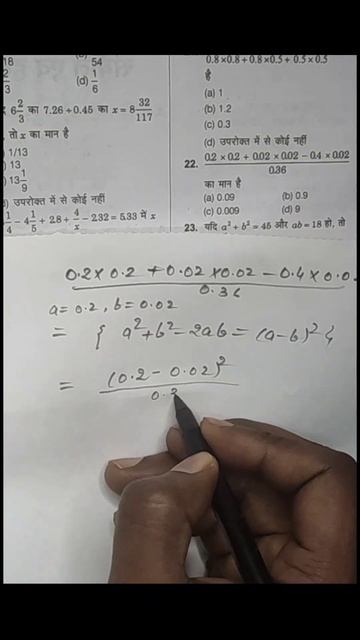 18
2/3
54
(d) 1/6
6 2/3 का 7.26 ÷ 0.45 का x = 8 32/117
तो x का मान है
1/13
13
13 1/9
उपरोक्त में से कोई नहीं
1/4 − 4 1/5 + 2.8 ÷ 4/x − 2.32 = 5.33 में x
0.8×0.8 + 0.8×0.5 + 0.5×0.5
है
(a) 1
(b) 1.2
(c) 0.3
(d) उपरोक्त में से कोई नहीं
22. (0.2 × 0.2 + 0.02 × 0.02 − 0.4 × 0.02)/0.36
का मान है
(a) 0.09 (b) 0.9
(c) 0.009 (d) 9
23. यदि a² + b² = 45 और ab = 18 हो, तो
0.2×0.2 + 0.02×0.02 − 0.4×0.0
0.36
a = 0.2, b = 0.02
= { a² + b² − 2ab = (a−b)² }
= (0.2 − 0.02)²
0.3